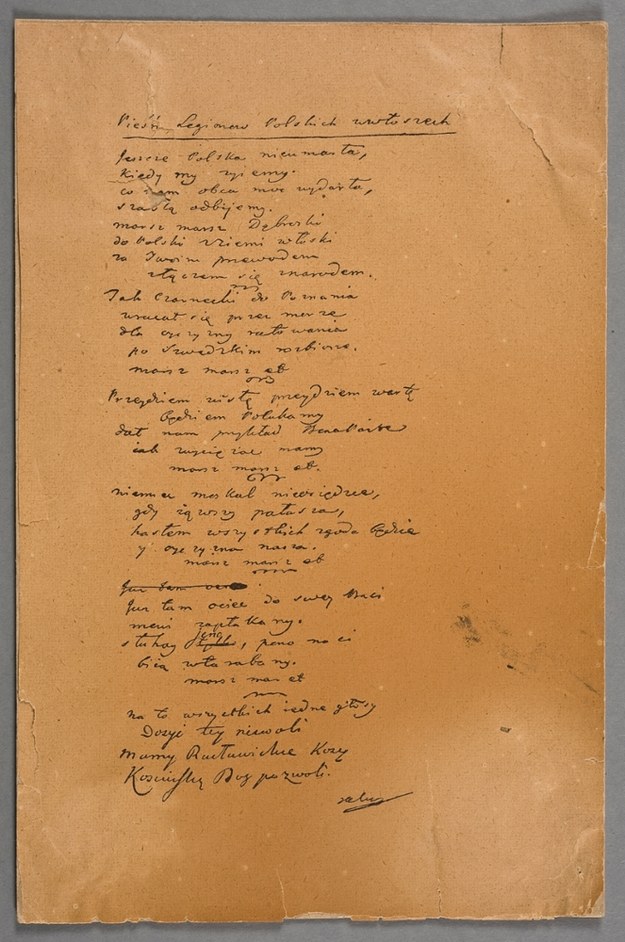 Pieśń Legionow Polskich wewłoszech
Jeszcze Polska nieumarła,
kiedy my zyiemy.
co nam obca moc wydarła,
szablą odbijemy.
marsz marsz Dąbroski
do Polski zziemi włoski
za Twoim przewodem
złączem się znarodem.
Jak Czarnecki do Poznania
wracał się przez morze
dla oyczyzny ratowania
po Szwedzkim rozbiorze.
marsz marsz et
Przejdziem wisłę przeydziem wartę
będziem Polakamy
dał nam przykład Bonaparte
iak zwyciężać mamy
marsz marsz et.
niemiec moskal nieosiędzie,
gdy iąwszy pałasza,
hasłem wszystkich zgoda będzie
y oyczyzna nasza.
marsz marsz et
Już tam ociec do swey Basi
mowi zapłakany.
słuchay jeno, pono nasi
biią wtarabany.
marsz mar et
na to wszystkich iedne głosy
Dosyć tey niewoli
mamy Racławickie Kosy
Kosciuszkę Bog pozwoli.